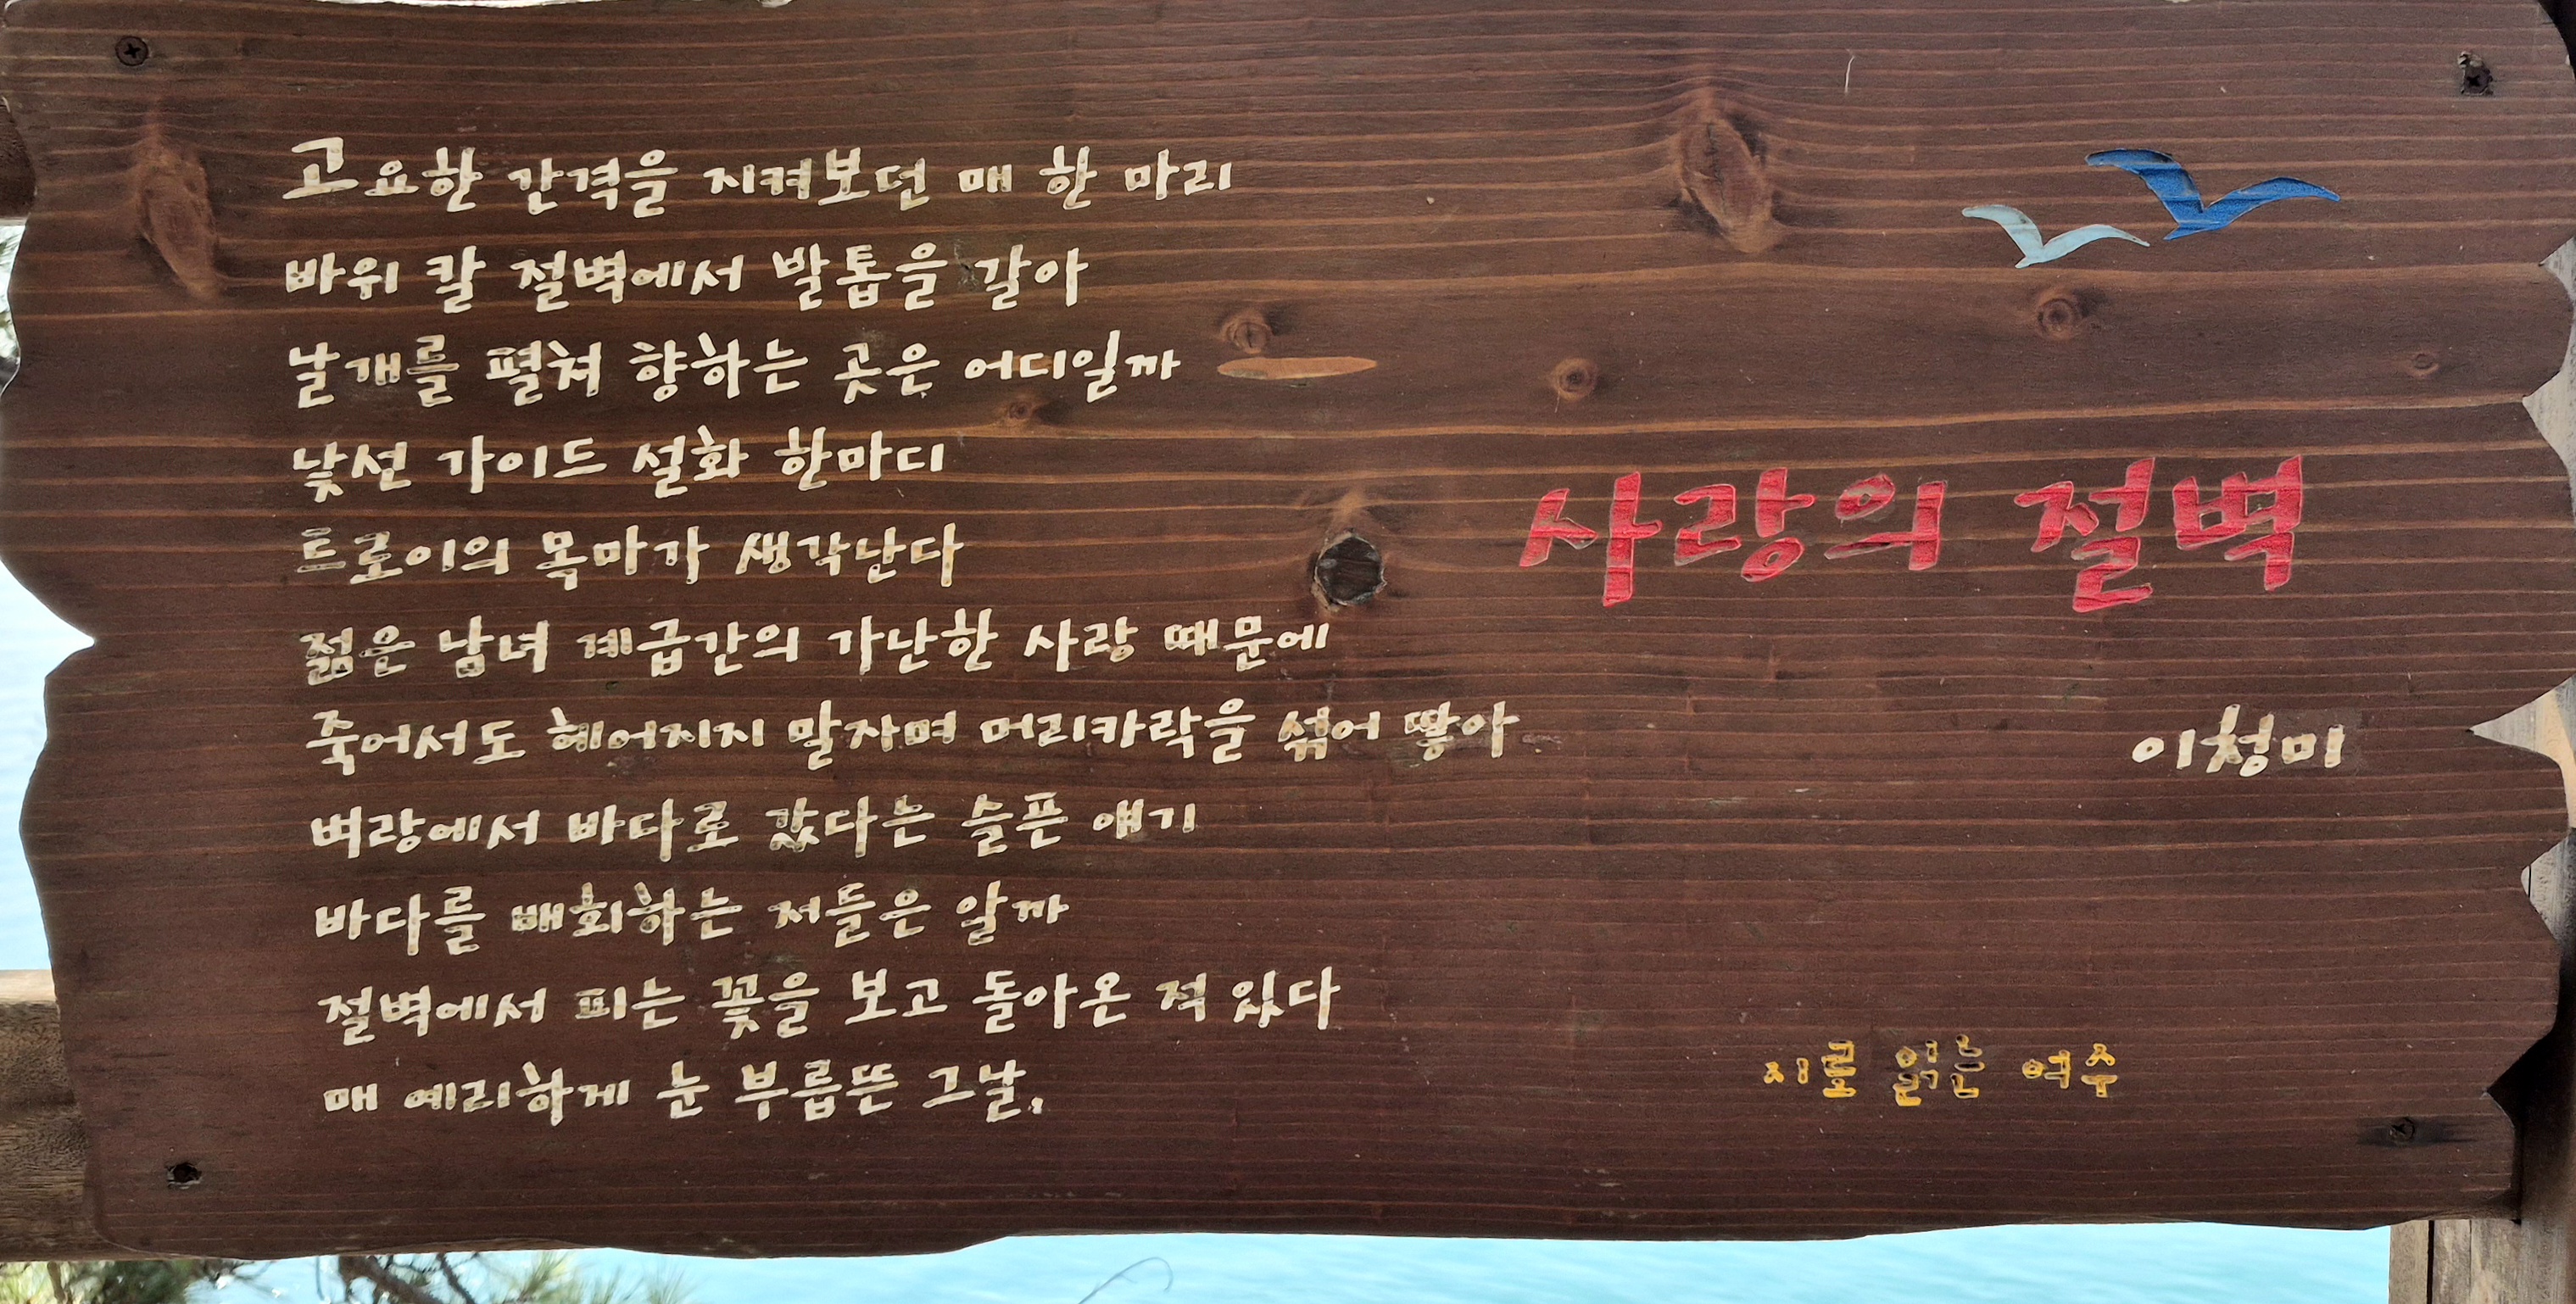 고요한 간격을 지켜보던 매 한 마리
바위 칼 절벽에서 발톱을 갈아
날개를 펼쳐 향하는 곳은 어디일까
낯선 가이드 설화 한마디
트로이의 목마가 생각난다
젊은 남녀 계급간의 가난한 사랑 때문에
죽어서도 헤어지지 말자며 머리카락을 섞어 땋아
벼랑에서 바다로 갔다는 슬픈 얘기
바다를 배회하는 저들은 알까
절벽에서 피는 꽃을 보고 돌아온 적 있다
매 예리하게 눈 부릅뜬 그날.
사랑의 절벽
이청미
시로 읽는 여수